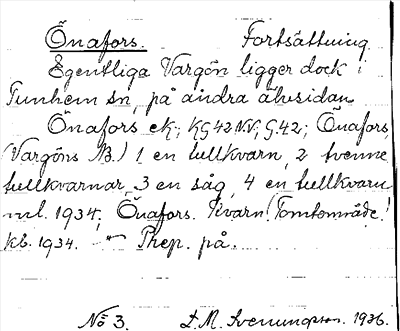 Önafors. Fortsättning.
Egentliga Vargön ligger dock i
Tunhem sn, på andra älvsidan
Önafors ek; KG42NV; G.42; Önafors,
(Vargöns N.B.) 1 en tullkvarn, 2 tvenne
tullkvarnar, 3 en såg, 4 en tullkvarn
ml. 1934; Önafors. Kvarn! Tomtområde!
kb. 1934. — " — Prep. på.
No 3. D.M. Svenungsson. 1936.